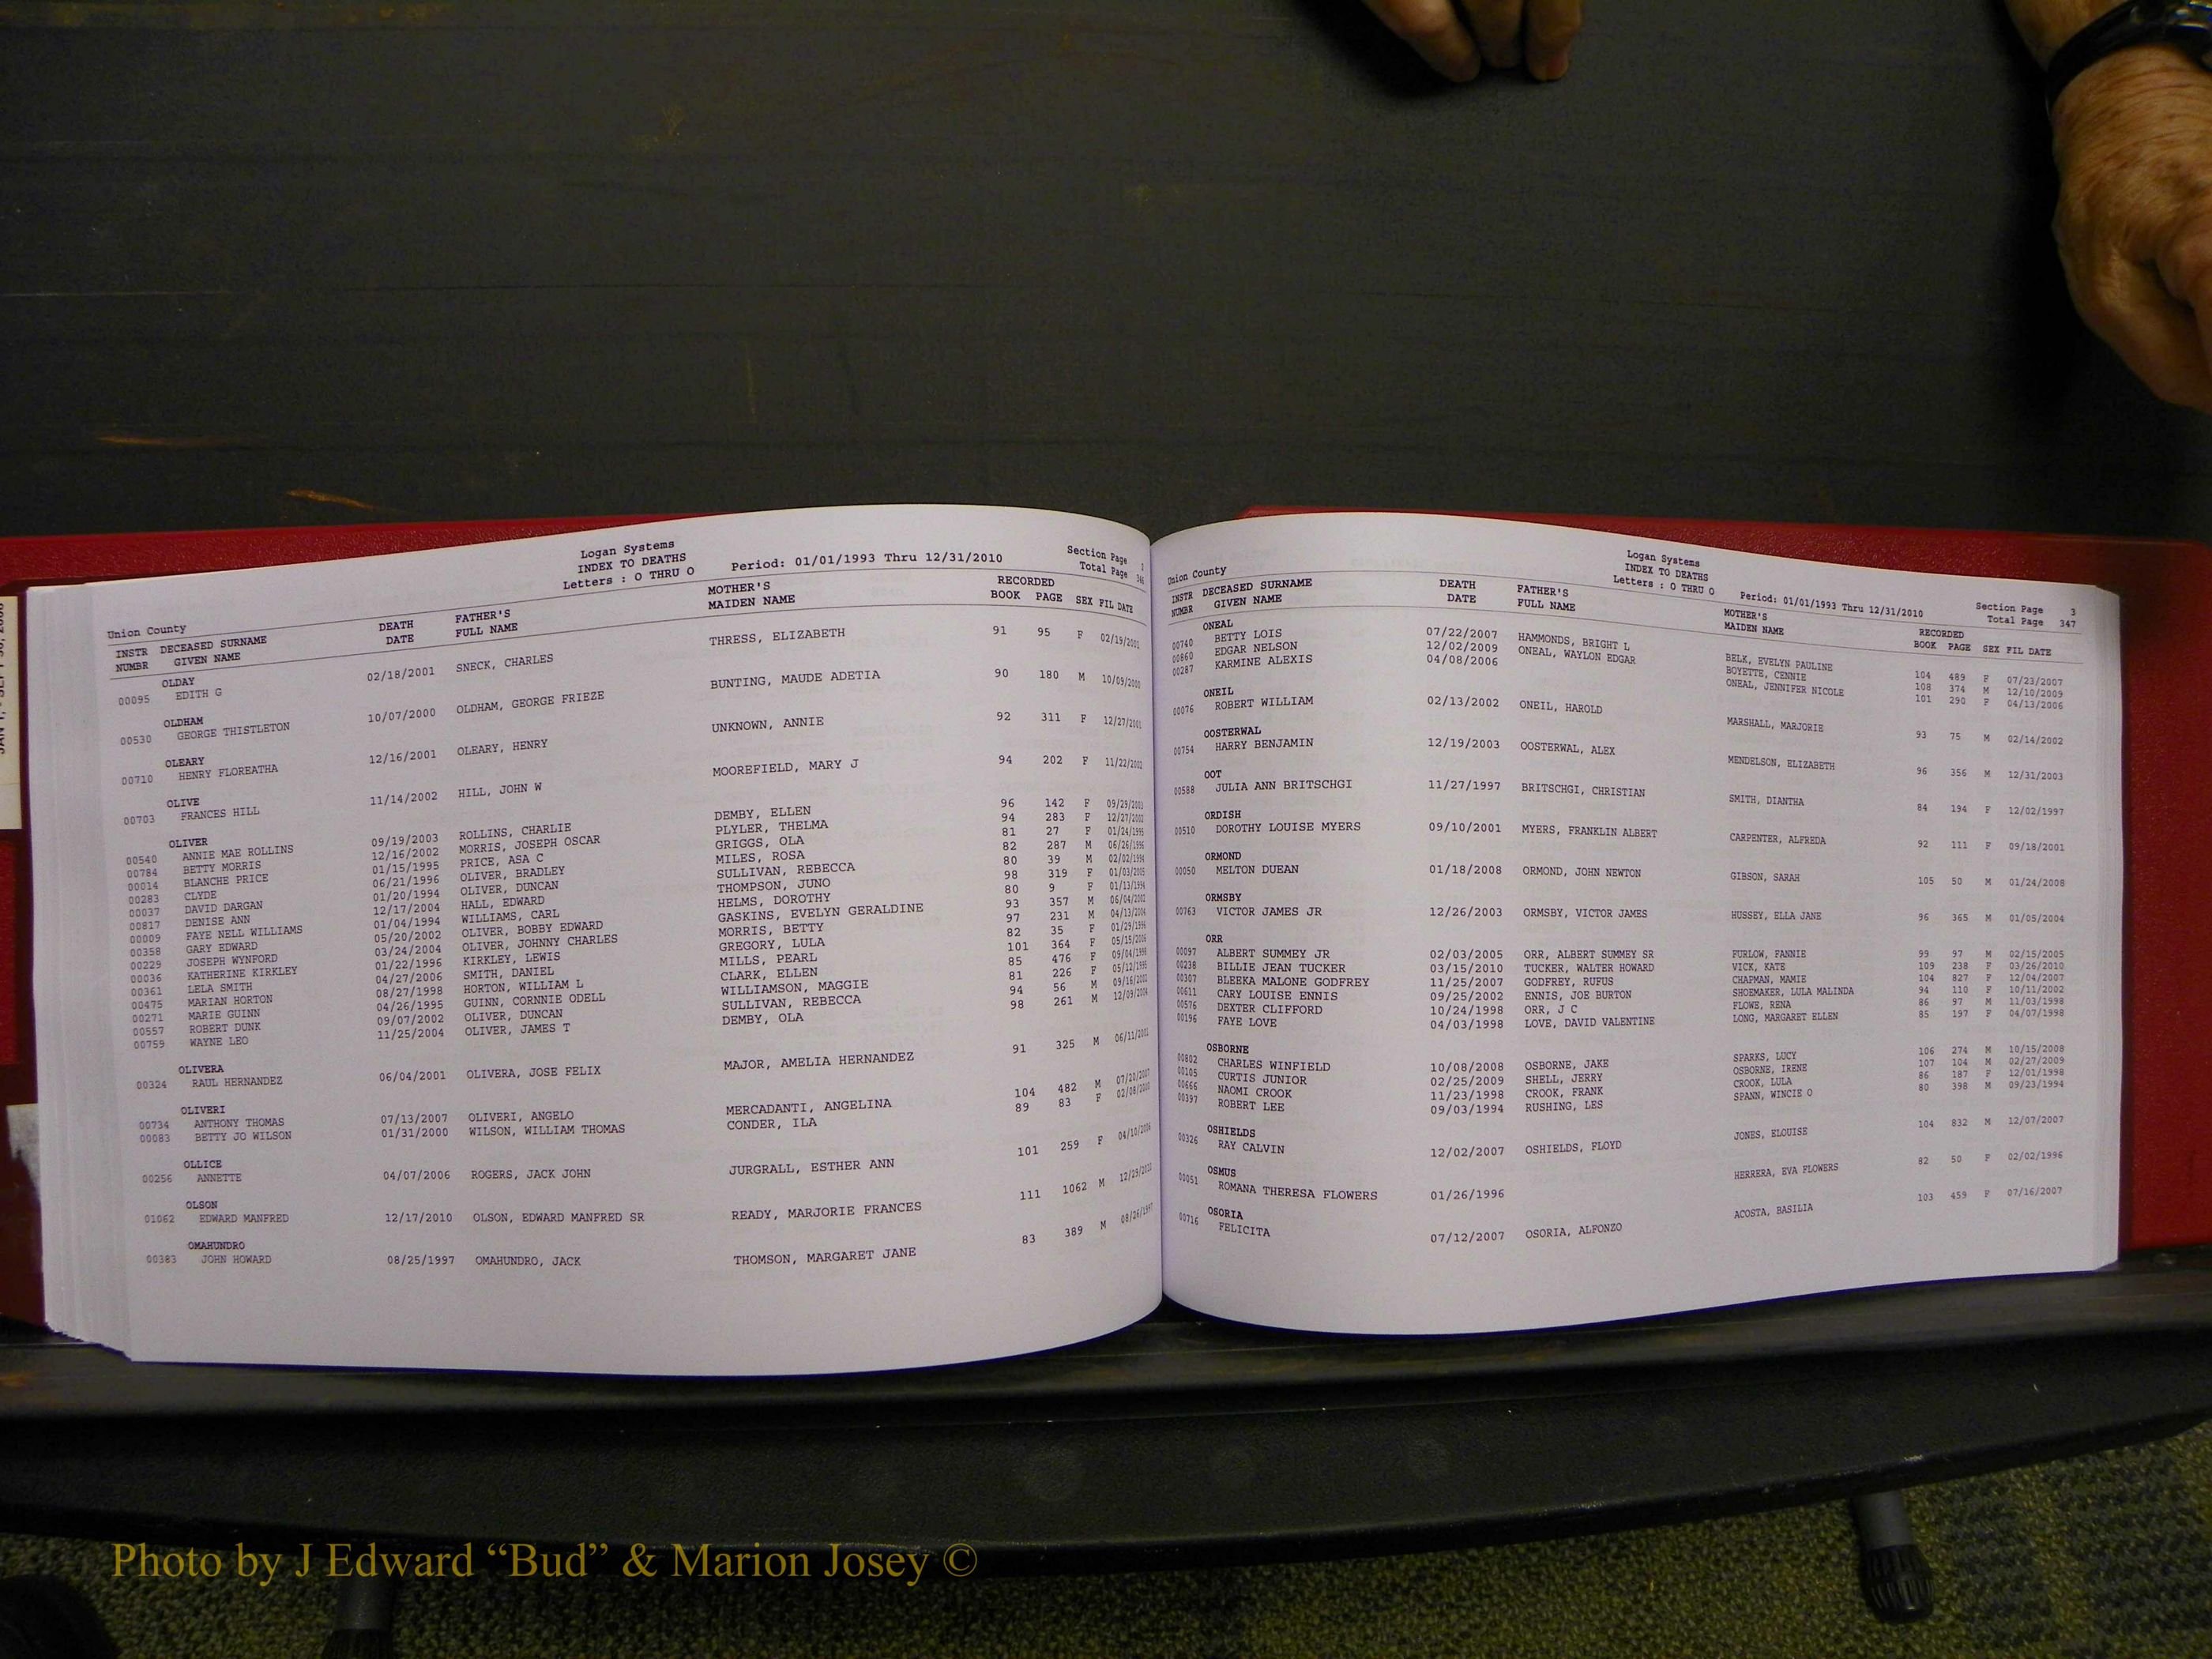 Logan Systems
INDEX TO DEATHS
Letters : O THRU O Period: 01/01/1993 Thru 12/31/2010 Section Page
Total Page
Union County
INSTR NUMBR DECEASED SURNAME GIVEN NAME DEATH DATE FATHER'S FULL NAME MOTHER'S MAIDEN NAME RECORDED BOOK PAGE SEX FIL DATE
OLDAY
00095 EDITH G 02/18/2001 SNECK, CHARLES THRESS, ELIZABETH 91 95 F 02/19/2001
OLDHAM
00530 GEORGE THISTLETON 10/07/2000 OLDHAM, GEORGE FRIEZE BUNTING, MAUDE ADETIA 90 180 M 10/09/2000
OLEARY
00710 HENRY FLOREATHA 12/16/2001 OLEARY, HENRY UNKNOWN, ANNIE 92 311 F 12/27/2001
OLIVE
00703 FRANCES HILL 11/14/2002 HILL, JOHN W MOOREFIELD, MARY J 94 202 F 11/22/2002
OLIVER
00540 ANNIE MAE ROLLINS 09/19/2003 ROLLINS, CHARLIE DEMBY, ELLEN 96 142 F 09/29/2003
00784 BETTY MORRIS 12/16/2002 MORRIS, JOSEPH OSCAR PLYLER, THELMA 94 283 F 12/27/2002
00014 BLANCHE PRICE 01/15/1995 PRICE, ASA C GRIGGS, OLA 81 27 F 01/24/1995
00283 CLYDE 06/21/1996 OLIVER, BRADLEY MILES, ROSA 82 287 M 06/26/1996
00037 DAVID DARGAN 01/20/1994 OLIVER, DUNCAN SULLIVAN, REBECCA 80 39 M 02/02/1994
00817 DENISE ANN 12/17/2004 HALL, EDWARD THOMPSON, JUNO 98 319 F 01/03/2005
00009 FAYE NELL WILLIAMS 01/04/1994 WILLIAMS, CARL HELMS, DOROTHY 80 9 F 01/13/1994
00358 GARY EDWARD 05/20/2002 OLIVER, BOBBY EDWARD GASKINS, EVELYN GERALDINE 93 357 M 06/04/2002
00229 JOSEPH WYNFORD 03/24/2004 OLIVER, JOHNNY CHARLES MORRIS, BETTY 97 231 M 04/13/2004
00036 KATHERINE KIRKLEY 01/22/1996 KIRKLEY, LEWIS GREGORY, LULA 82 35 F 01/29/1996
00361 LELA SMITH 04/27/2006 SMITH, DANIEL MILLS, PEARL 101 364 F 05/15/2006
00475 MARIAN HORTON 08/27/1998 HORTON, WILLIAM L CLARK, ELLEN 85 476 F 09/04/1998
00271 MARIE GUINN 04/26/1995 GUINN, CORNNIE ODELL WILLIAMSON, MAGGIE 81 226 F 05/12/1995
00557 ROBERT DUNK 09/07/2002 OLIVER, DUNCAN SULLIVAN, REBECCA 94 56 M 09/16/2002
00759 WAYNE LEO 11/25/2004 OLIVER, JAMES T DEMBY, OLA 98 261 M 12/09/2004
OLIVERA
00324 RAUL HERNANDEZ 06/04/2001 OLIVERA, JOSE FELIX MAJOR, AMELIA HERNANDEZ 91 325 M 06/11/2001
OLIVERI
00734 ANTHONY THOMAS 07/13/2007 OLIVERI, ANGELO MERCADANTI, ANGELINA 104 482 M 07/20/2007
00083 BETTY JO WILSON 01/31/2000 WILSON, WILLIAM THOMAS CONDER, ILA 89 83 F 02/08/2000
OLLICE
00256 ANNETTE 04/07/2006 ROGERS, JACK JOHN JURGRALL, ESTHER ANN 101 259 F 04/10/2006
OLSON
01062 EDWARD MANFRED 12/17/2010 OLSON, EDWARD MANFRED SR READY, MARJORIE FRANCES 111 1062 M 12/29/2010
OMAHUNDRO
00383 JOHN HOWARD 08/25/1997 OMAHUNDRO, JACK THOMSON, MARGARET JANE 83 389 M 08/26/1997
Logan Systems
INDEX TO DEATHS
Letters : O THRU O Period: 01/01/1993 Thru 12/31/2010 Section Page 3
Total Page 347
Union County
INSTR NUMBR DECEASED SURNAME GIVEN NAME DEATH DATE FATHER'S FULL NAME MOTHER'S MAIDEN NAME RECORDED BOOK PAGE SEX FIL DATE
ONEAL
00740 BETTY LOIS 07/22/2007 HAMMONDS, BRIGHT L BELK, EVELYN PAULINE 104 489 F 07/23/2007
00860 EDGAR NELSON 12/02/2009 ONEAL, WAYLON EDGAR BOYETTE, CENNIE 108 374 M 12/10/2009
00287 KARMINE ALEXIS 04/08/2006 ONEAL, JENNIFER NICOLE 101 290 F 04/13/2006
ONEIL
00076 ROBERT WILLIAM 02/13/2002 ONEIL, HAROLD MARSHALL, MARJORIE 93 75 M 02/14/2002
OOSTERWAL
00754 HARRY BENJAMIN 12/19/2003 OOSTERWAL, ALEX MENDELSON, ELIZABETH 96 356 M 12/31/2003
OOT
00588 JULIA ANN BRITSCHGI 11/27/1997 BRITSCHGI, CHRISTIAN SMITH, DIANTHA 84 194 F 12/02/1997
ORDISH
00510 DOROTHY LOUISE MYERS 09/10/2001 MYERS, FRANKLIN ALBERT CARPENTER, ALFREDA 92 111 F 09/18/2001
ORMOND
00050 MELTON DUEAN 01/18/2008 ORMOND, JOHN NEWTON GIBSON, SARAH 105 50 M 01/24/2008
ORMSBY
00763 VICTOR JAMES JR 12/26/2003 ORMSBY, VICTOR JAMES HUSSEY, ELLA JANE 96 365 M 01/05/2004
ORR
00097 ALBERT SUMMEY JR 02/03/2005 ORR, ALBERT SUMMEY SR FURLOW, FANNIE 99 97 M 02/15/2005
00238 BILLIE JEAN TUCKER 03/15/2010 TUCKER, WALTER HOWARD VICK, KATE 109 238 F 03/26/2010
00307 BLEEKA MALONE GODFREY 11/25/2007 GODFREY, RUFUS CHAPMAN, MAMIE 104 827 F 12/04/2007
00611 CARY LOUISE ENNIS 09/25/2002 ENNIS, JOE BURTON SHOEMAKER, LULA MALINDA 94 110 F 10/11/2002
00576 DEXTER CLIFFORD 10/24/1998 ORR, J C FLOWE, RENA 86 97 M 11/03/1998
00196 FAYE LOVE 04/03/1998 LOVE, DAVID VALENTINE LONG, MARGARET ELLEN 85 197 F 04/07/1998
OSBORNE
00802 CHARLES WINFIELD 10/08/2008 OSBORNE, JAKE SPARKS, LUCY 106 274 M 10/15/2008
00105 CURTIS JUNIOR 02/25/2009 SHELL, JERRY OSBORNE, IRENE 107 104 M 02/27/2009
00666 NAOMI CROOK 11/23/1998 CROOK, FRANK CROOK, LULA 86 187 F 12/01/1998
00397 ROBERT LEE 09/03/1994 RUSHING, LES SPANN, WINCIE O 80 398 M 09/23/1994
OSHIELDS
00326 RAY CALVIN 12/02/2007 OSHIELDS, FLOYD JONES, ELOUISE 104 832 M 12/07/2007
OSMUS
00051 ROMANA THERESA FLOWERS 01/26/1996 HERRERA, EVA FLOWERS 82 50 F 02/02/1996
OSORIA
00716 FELICITA 07/12/2007 OSORIA, ALFONZO ACOSTA, BASILIA 103 459 F 07/16/2007
Photo by J Edward “Bud” & Marion Josey ©